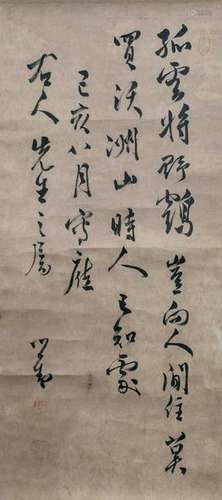 孤雲將野鶴豈向人間住莫
買沃洲山時人已知處
己亥八月寫應
右人先生之屬
心畬